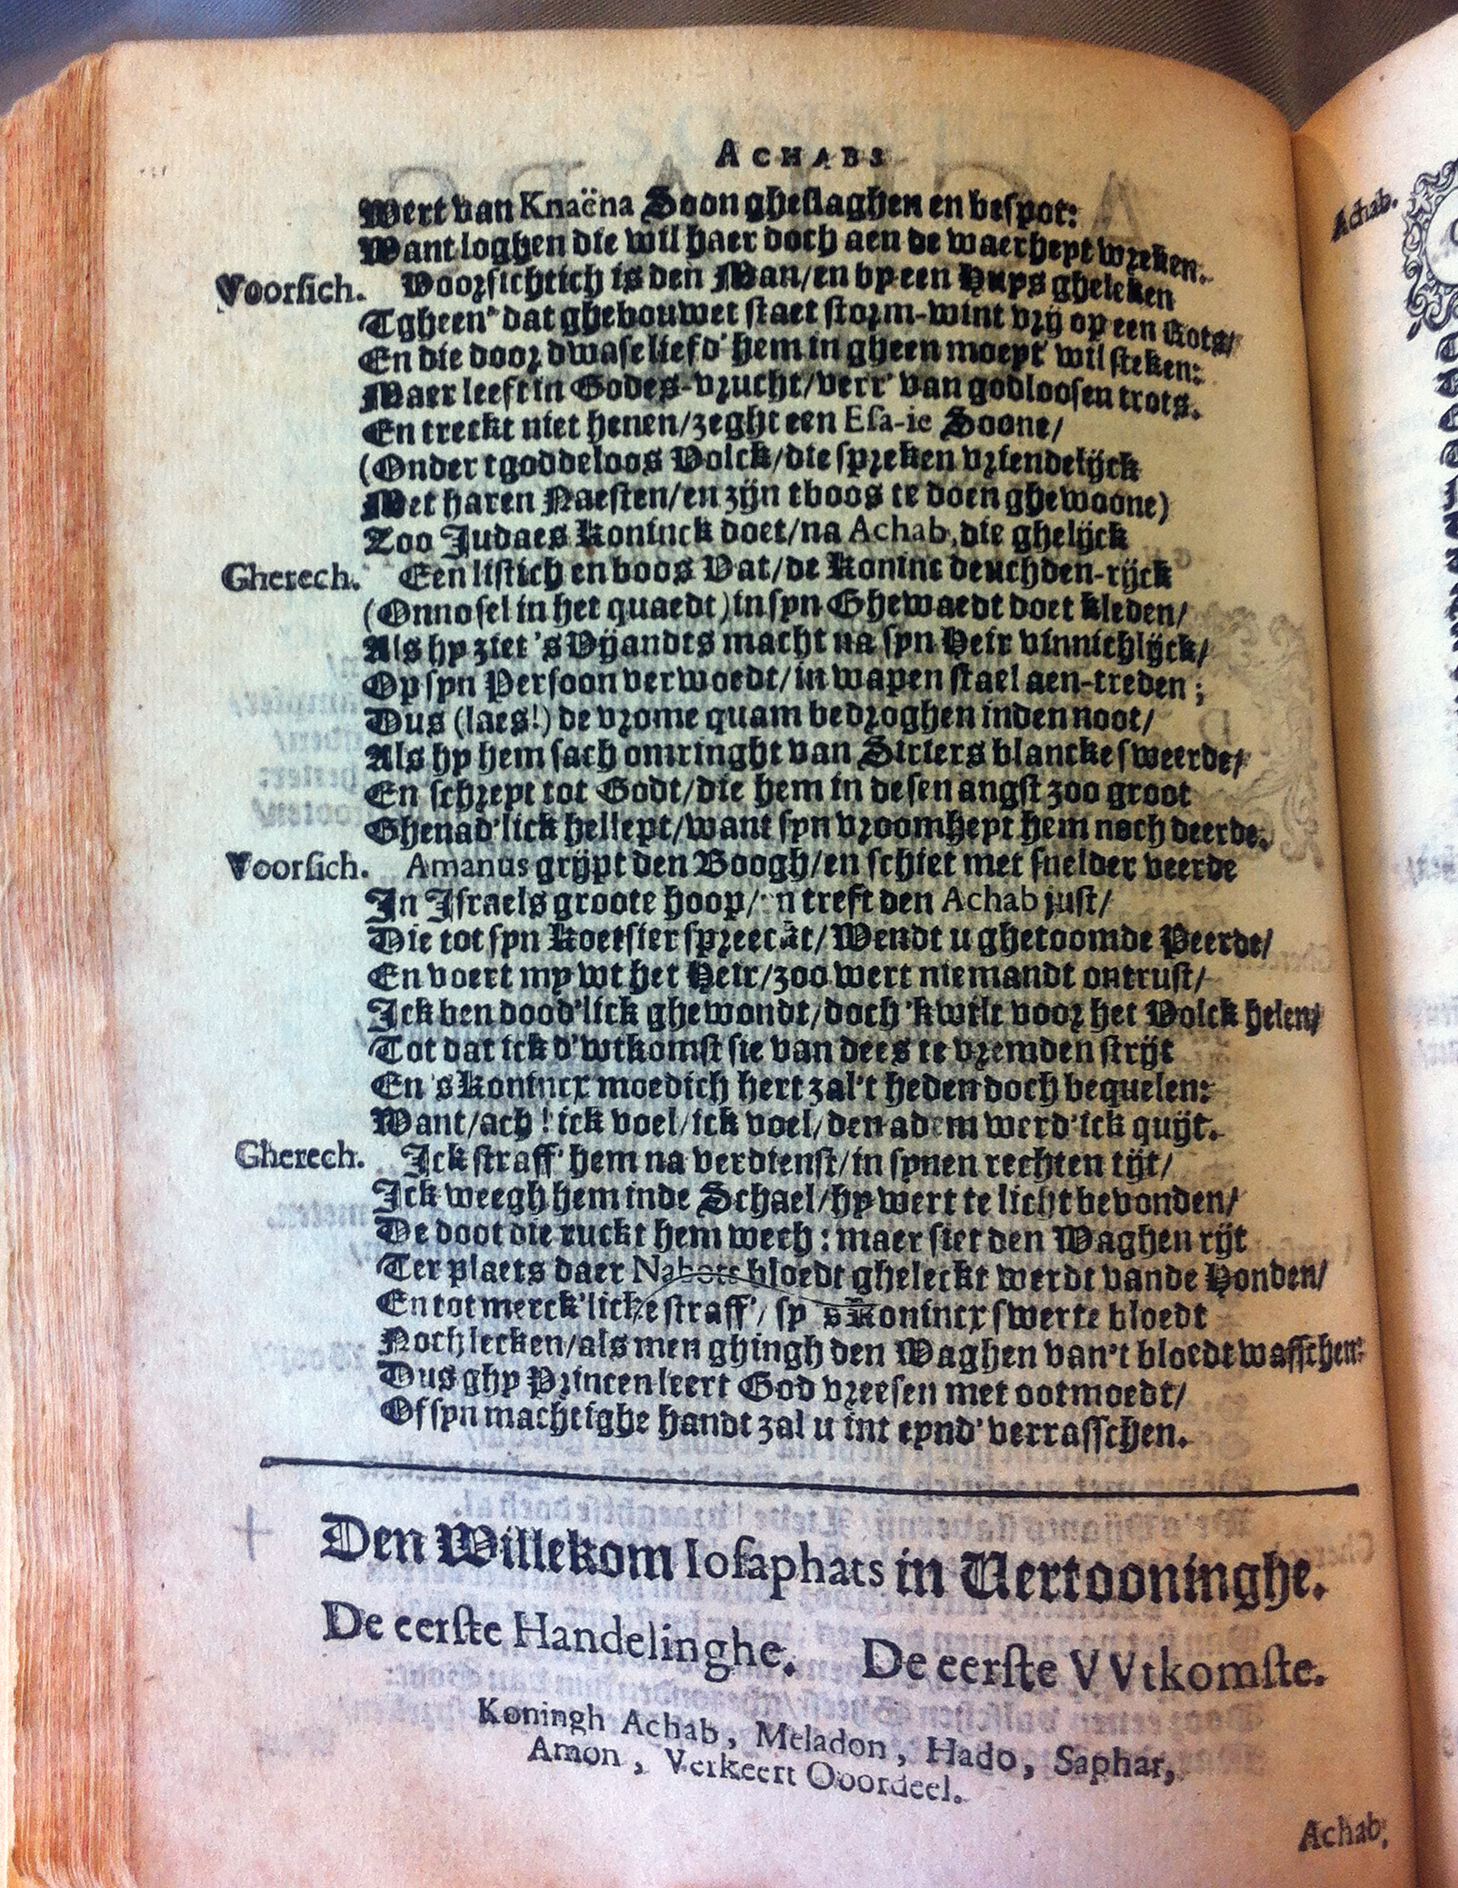 ACHABS
Wert van Knaëna Soon gheslaghen en bespot:
Want loghen die wil haer doch aen de waerheyt wreken.
Voorsich. Voorsichtich is den Man/en by een Huys gheleken
Tgheen' dat ghebouwet staet storm-wint vrij op een Rots/
En die door dwase liefd' hem in gheen moeyt wil steken:
Maer leeft in Godes-vrucht/verr' van godloosen trots.
En treckt niet henen/zeght een Esa-ie Soone/
(Onder tgoddeloos Volck/die spreken vriendelijck
Met haren Naesten/en zijn tboos te doen ghewoone)
Zoo Judaes Koninck doet/na Achab, die ghelijck
Gherech. Een listich en boos Vat/de Konинc deuchden-rijck
(Onnosel in het quaedt) in syn Ghewaedt doet kleden/
Als hy ziet 's Vijandts macht na syn Heir vinnichlijck/
Op syn Persoon verwoedt/in wapen stael aen-treden;
Dus (laes!) de vrome quam bedroghen inden noot/
Als hy hem sach omringht van Siriers blancke sweerde/
En schreyt tot Godt/die hem in desen angst zoo groot
Ghenad'lick hellept/want syn vroomheyt hem noch deerde.
Voorsich. Amanus grijpt den Boogh/en schiet met snelder veerde
In Israels groote hoop/en treft den Achab just/
Die tot syn Koetsier spreeckt/Wendt u ghetoomde Peerde/
En voert my wt het Heir/zoo wert niemandt ontrust/
Ick ben dood'lick ghewondt/doch 'kwilt voor het Volck helen/
Tot dat ick d'wtkomst sie van dees te vremden strijt
En 's Konincx moedich hert zal't heden doch bequelen:
Want/ach! ick voel/ick voel/den adem werd'ick quijt.
Gherech. Ick straff' hem na verdienst/in synen rechten tijt/
Ick weegh hem inde Schael/hy wert te licht bevonden/
De doot die ruckt hem wech: maer siet den Waghen rijt
Ter plaets daer Nabots bloedt gheleckt werdt vande Honden/
En tot merck'licke straff'/ sy 's Konincx swerte bloedt
Noch lecken/als men ghingh den Waghen van't bloedt wasschen:
Dus ghy Princen leert God vreesen met ootmoedt/
Of syn machtighe handt zal u int eynd' verrasschen.
Den Willekom Iosaphats in Vertooninghe.
De eerste Handelinghe. De eerste VVtkomste.
Koningh Achab, Meladon, Hado, Saphar,
Amon, Verkeert Ooordeel.
Achab,
Achab.